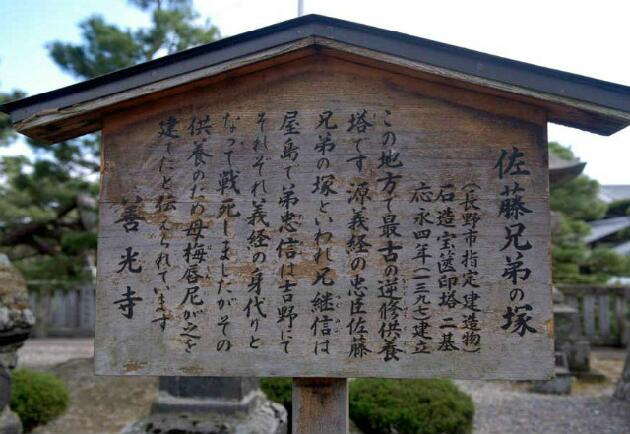 佐藤兄弟の塚
(長野市指定建造物)
石造宝篋印塔 二基
応永四年(一三九七建立
この地方で最古の逆修供養
塔です 源義経の忠臣佐藤
兄弟の塚といわれ兄継信は
屋島で弟忠信は吉野にて
それぞれ義経の身代りと
なって戦死しましたがその
供養のため母梅唇尼が之を
建てたと伝えられています
善光寺